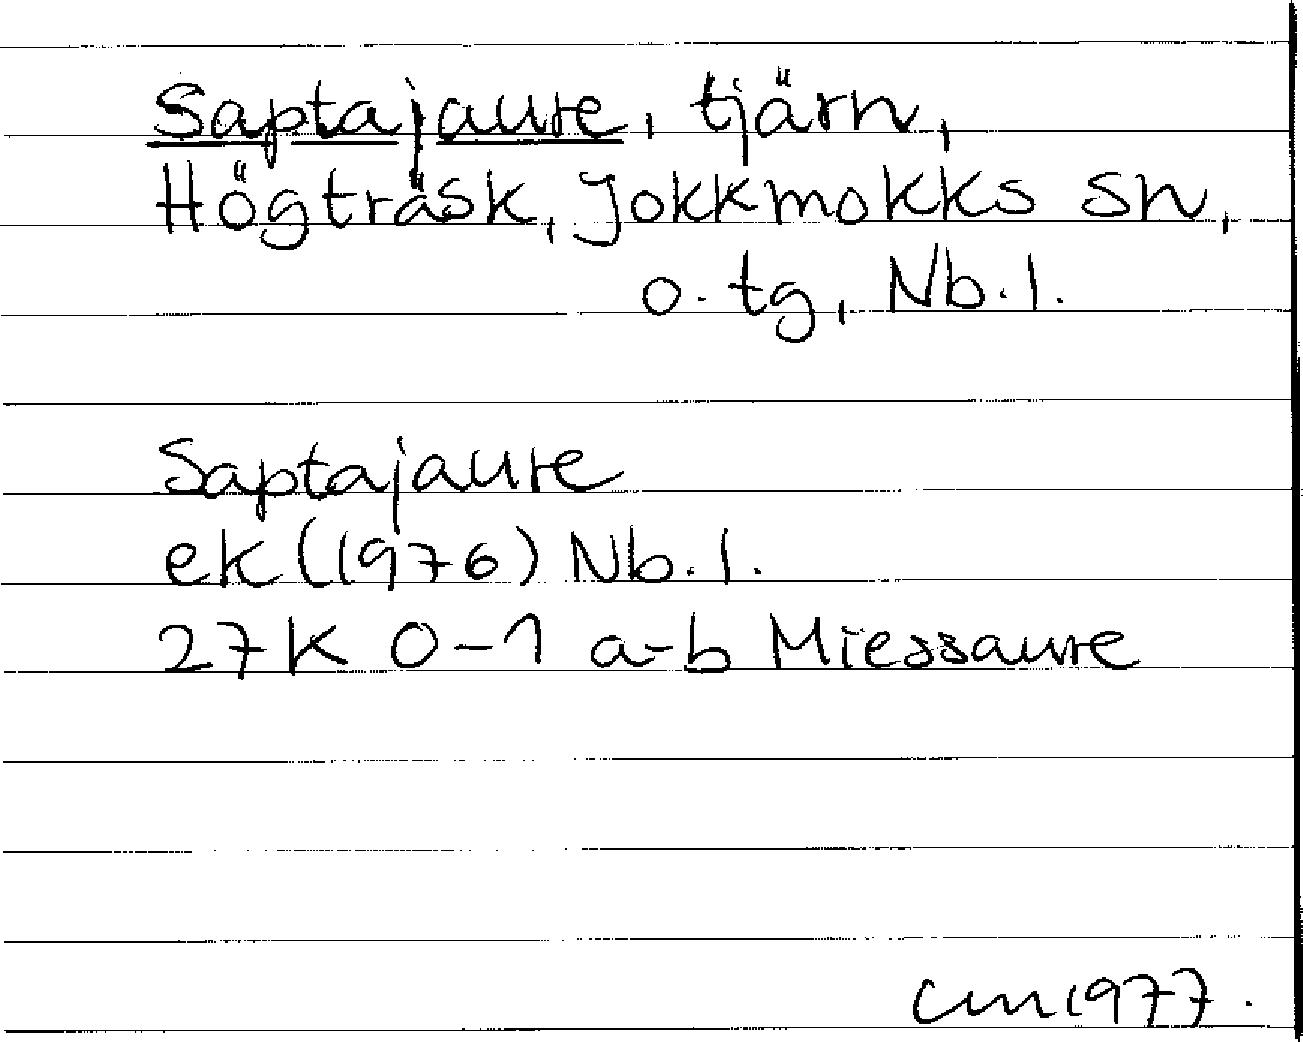 Saptajaure, tjärn,
Högträsk, Jokkmokks sn,
o. tg, Nb. l.
Saptajaure
ek (1976) Nb. l.
27K 0-1 a-b Miessaure
cm 1977.